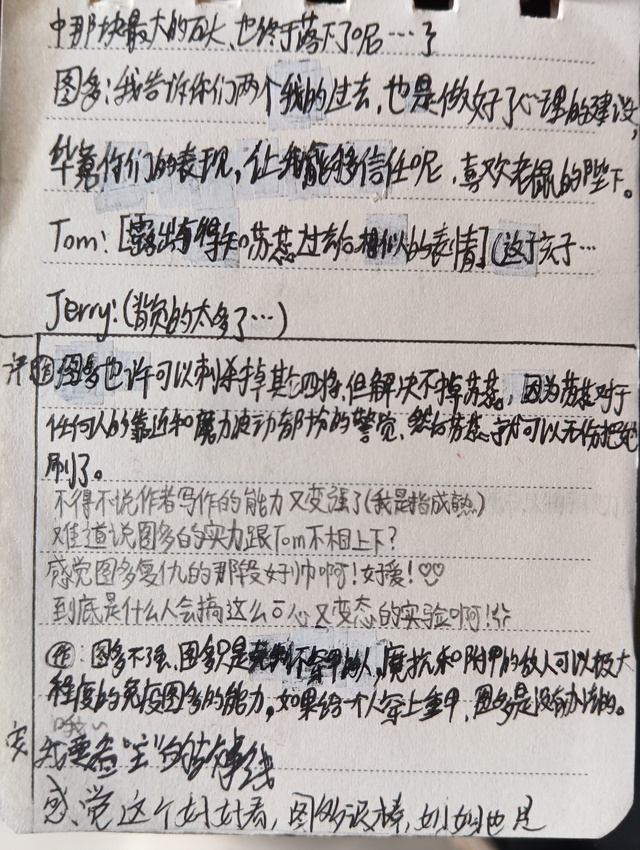 中那块最大的石头,也终于落下了呢…了
图多:我告诉你们两个我的过去,也是做好了心理的建设,
毕竟你们的表现,让我能够信任呢,喜欢老鼠的陛下。
Tom:[露出有得知苏蕊过去后相似的表情](这于孩子…
Jerry:(背负的太多了…)
评 图多也许可以刺杀掉其它四将,但解决不掉苏蕊,因为苏蕊对于
任何人的靠近和魔力波动都扮的警觉,然后苏蕊就可以无伤把她
刷了。
不得不说作者写作的能力又变强了(我是指成熟)
难道说图多的实力跟Tom不相上下?
感觉图多复仇的那段好帅啊!好爱!♡♡
到底是什么人会搞这么恶心又变态的实验啊!
作:图多不强,图多只是 不穿甲的人,魔抗和附甲的敌人可以极大
程度的免疫图多的能力,如果给一个人穿上重甲,图多是没有办法的。
哦~
我要
感觉这个好好看,图多很棒,妙妙也是